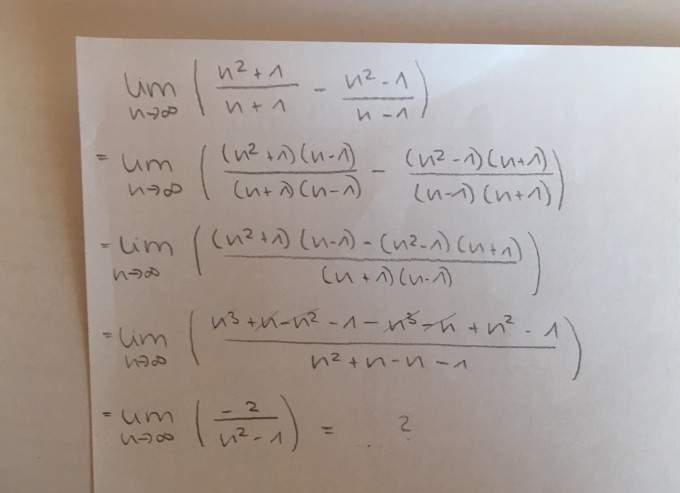 lim n→∞ ( (n² + 1)/(n + 1) - (n² - 1)/(n - 1) )
= lim n→∞ ( (n² + 1)(n - 1)/(n + 1)(n - 1) - (n² - 1)(n + 1)/(n - 1)(n + 1) )
= lim n→∞ ( ((n² + 1)(n - 1) - (n² - 1)(n + 1))/(n + 1)(n - 1) )
= lim n→∞ ( (n³ + n - n² - 1 - n³ - n + n² - 1)/(n² + n - n - 1) )
= lim n→∞ ( -2/(n² - 1) ) = ... ?